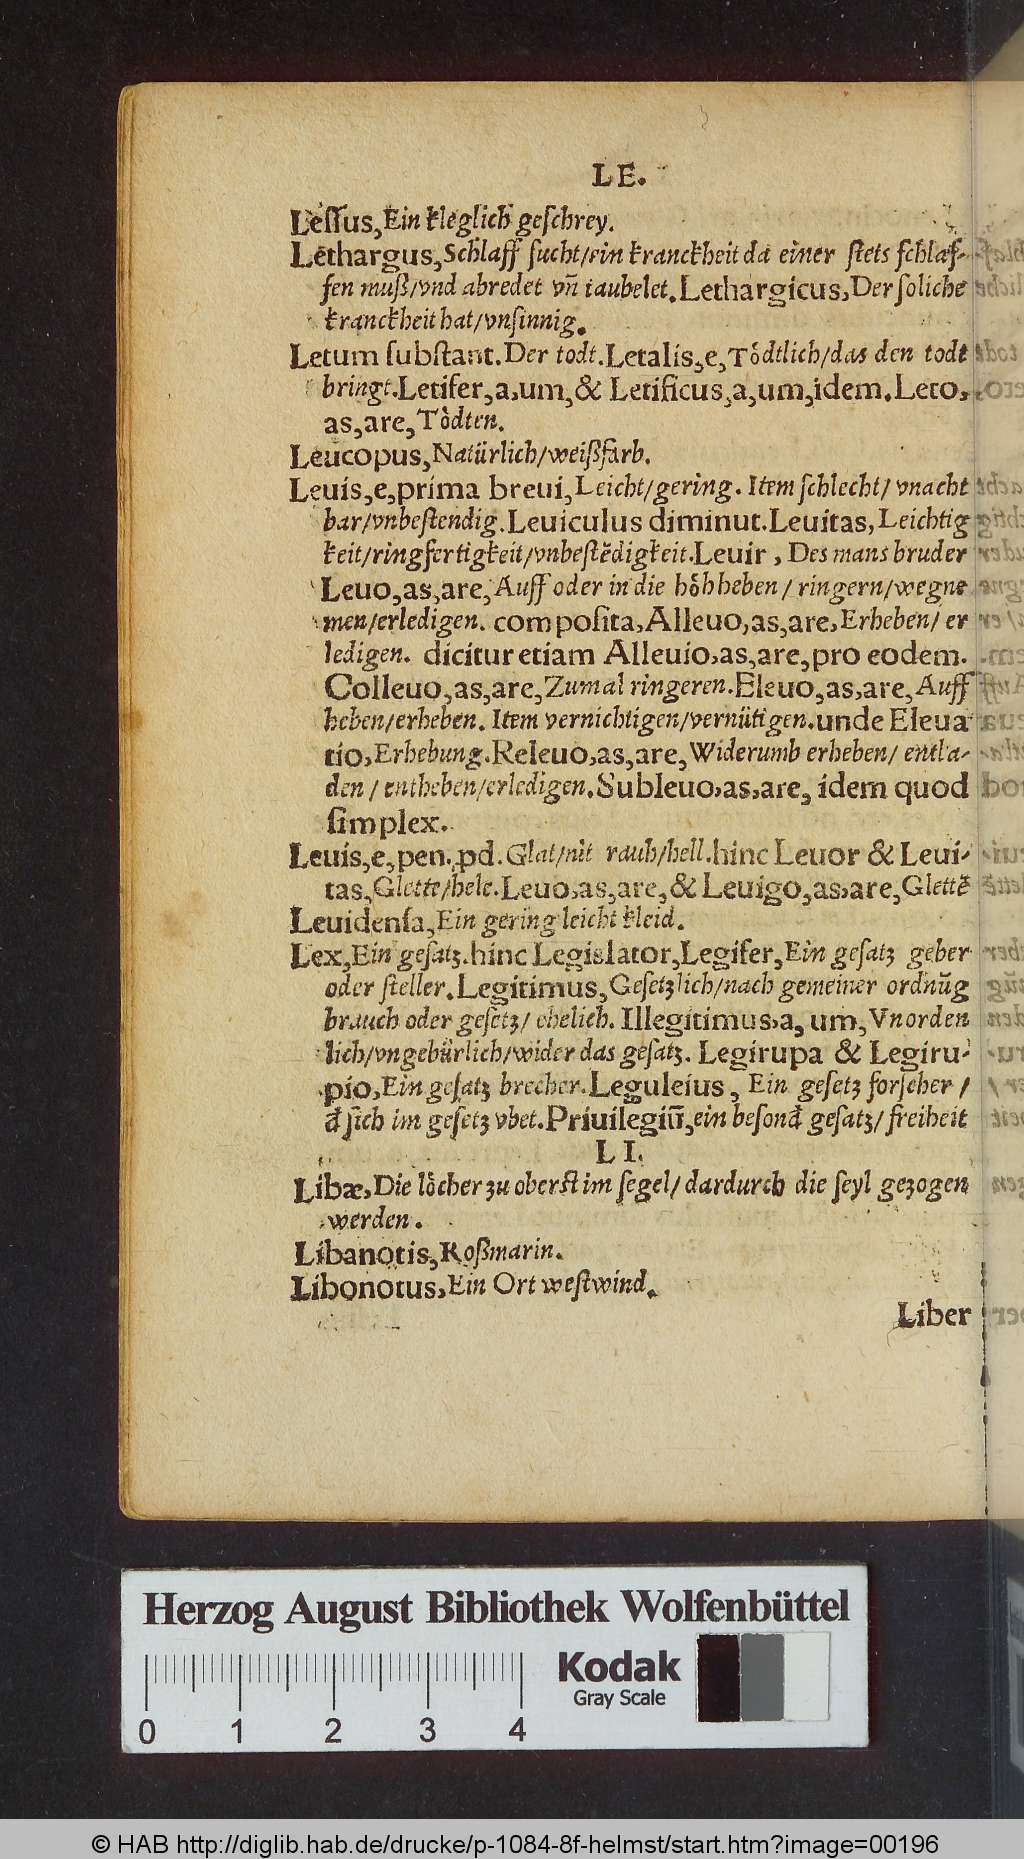 LE.
Leſſus, Ein kleglich geſchrey.
Lethargus, Schlaff ſucht/ein kranckheit da einer ſtets ſchlaf-
fen muß/vnd abredet vñ taubelet. Lethargicus, Der ſoliche
kranckheit hat/vnſinnig.
Letum ſubſtant. Der todt. Letalis,e, Tödtlich/das den todt
bringt. Letifer,a,um,& Letificus,a,um,idem. Leto,
as,are, Tödten.
Leucopus, Natürlich/weißfarb.
Leuis,e,prima breui, Leicht/gering. Item ſchlecht/ vnacht
bar/vnbeſtendig. Leuiculus diminut. Leuitas, Leichtig
keit/ringfertigkeit/vnbeſtēdigkeit. Leuir, Des mans bruder
Leuo,as,are, Auff oder in die höh heben/ ringern/wegne
men/erledigen. compoſita, Alleuo,as,are, Erheben/ er
ledigen. dicitur etiam Alleuio,as,are,pro eodem.
Colleuo,as,are, Zumal ringeren. Eleuo,as,are, Auff
heben/erheben. Item vernichtigen/vernütigen. unde Eleua
tio, Erhebung. Releuo,as,are, Widerumb erheben/ entla-
den/ entheben/erledigen. Subleuo,as,are, idem quod
ſimplex.
Leuis,e,pen.pd. Glat/nit rauh/hell. hinc Leuor & Leui-
tas, Glette/hele. Leuo,as,are,& Leuigo,as,are, Glettē
Leuidenſa, Ein gering leicht kleid.
Lex, Ein geſatz. hinc Legislator, Legifer, Ein geſatz geber
oder ſteller. Legitimus, Geſetzlich/nach gemeiner ordnūg
brauch oder geſetz/ ehelich. Illegitimus,a, um, Vnorden
lich/vngebürlich/wider das geſatz. Legirupa & Legiru-
pio, Ein geſatz brecher. Leguleius, Ein geſetz forſcher /
đ ſich im geſetz vbet. Priuilegiū, ein beſonđ geſatz/ freiheit
LI.
Libæ, Die löcher zu oberſt im ſegel/ dardurch die ſeyl gezogen
werden.
Libanotis, Roßmarin.
Libonotus, Ein Ort weſtwind.
Liber
Herzog August Bibliothek Wolfenbüttel
Kodak
Gray Scale
0 1 2 3 4
© HAB http://diglib.hab.de/drucke/p-1084-8f-helmst/start.htm?image=00196